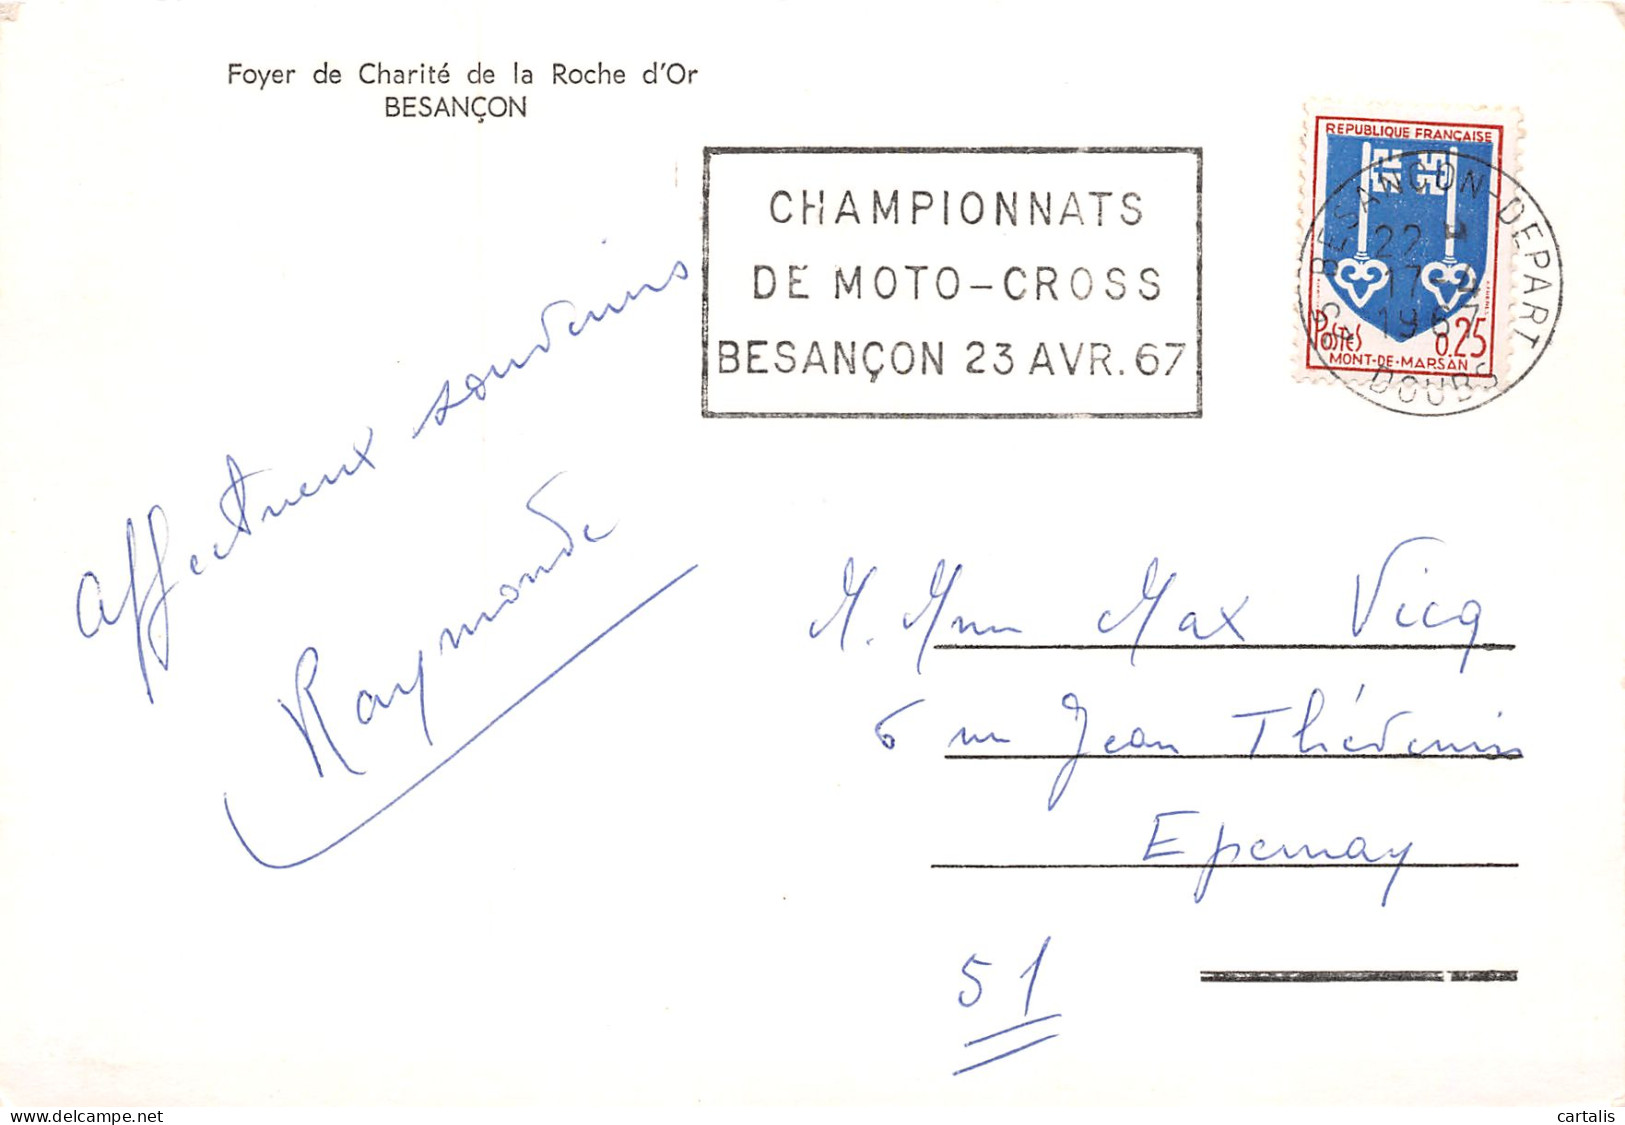 Foyer de Charité de la Roche d'Or
BESANÇON
CHAMPIONNATS
DE MOTO-CROSS
BESANÇON 23 AVR. 67
REPUBLIQUE FRANÇAISE
Postes 0.25
MONT-DE-MARSAN
BESANÇON-DEPART
22
17-4
1967
DOUBS
Affectueux souvenirs
Raymonde
M. Mme Max Vicq
6 rue Jean Thévenin
Epernay
51
www.delcampe.net
cartalis